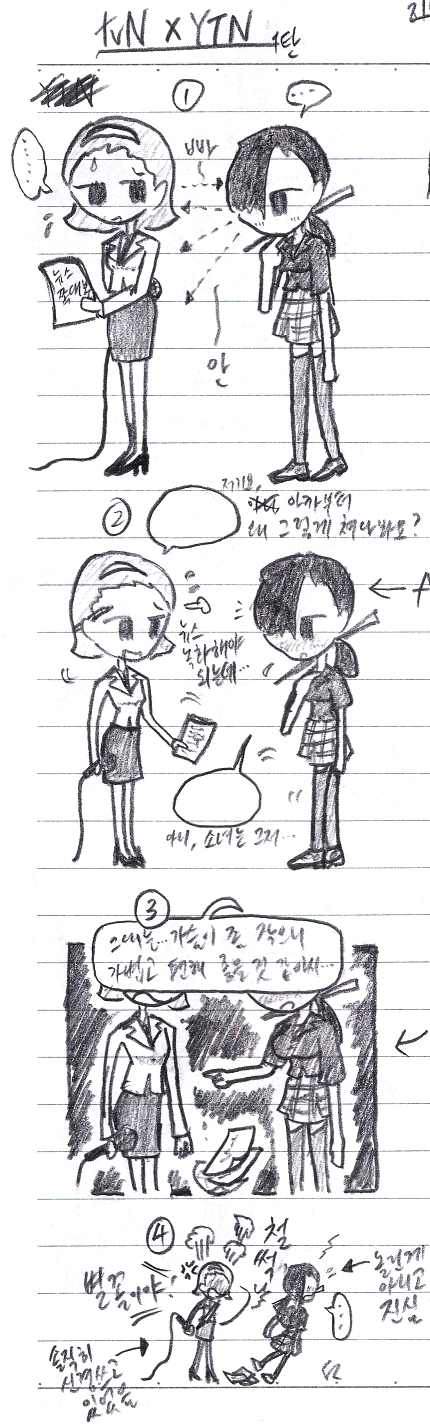 tvN X YTN 1탄
①
....
...
뉴스
안
②
저기요,
아까부터
왜 그렇게 쳐다봐요?
뉴스
녹화해야
되는데...
아니, 소녀는 그저...
③
그대는...가슴이 좀 작으니
가볍고 편해 좋을 것 같아서...
④
별꼴이야!
철
썩
놀린게
아니고
진심
...
솔직히
신경쓰고
있었음